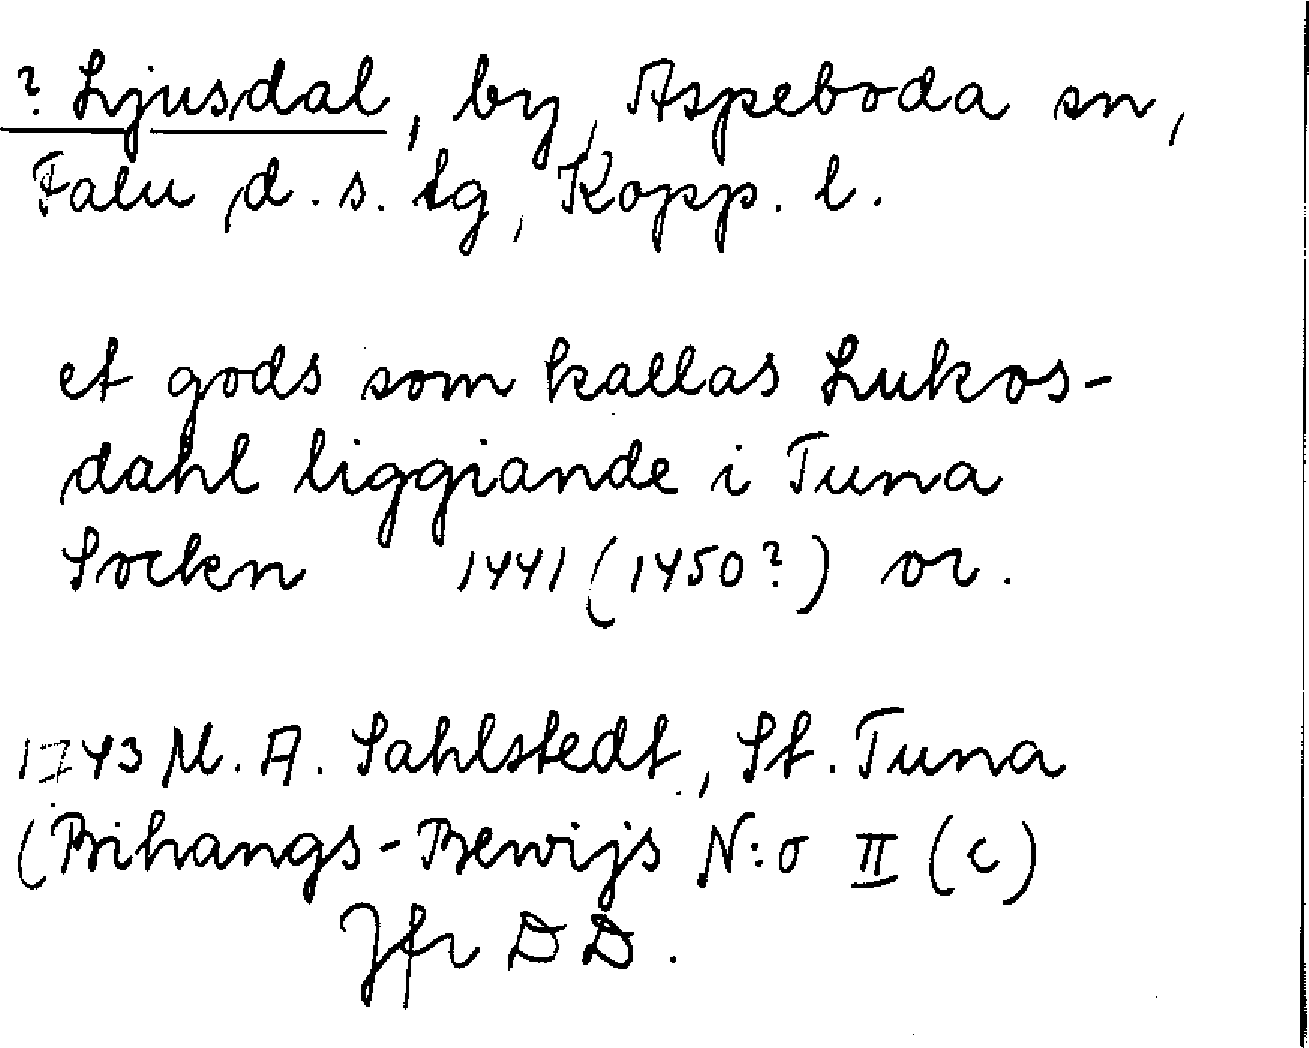 ? Ljusdal, by, Aspeboda sn,
Falu d. s. tg, Kopp. l.
et gods som kallas Lukos-
dahl liggiande i Tuna
Sockn 1441 (1450?) or.
1743 M. A. Sahlstedt, St. Tuna
(Bihangs-Bewijs N:o II (c)
Jfr DD.